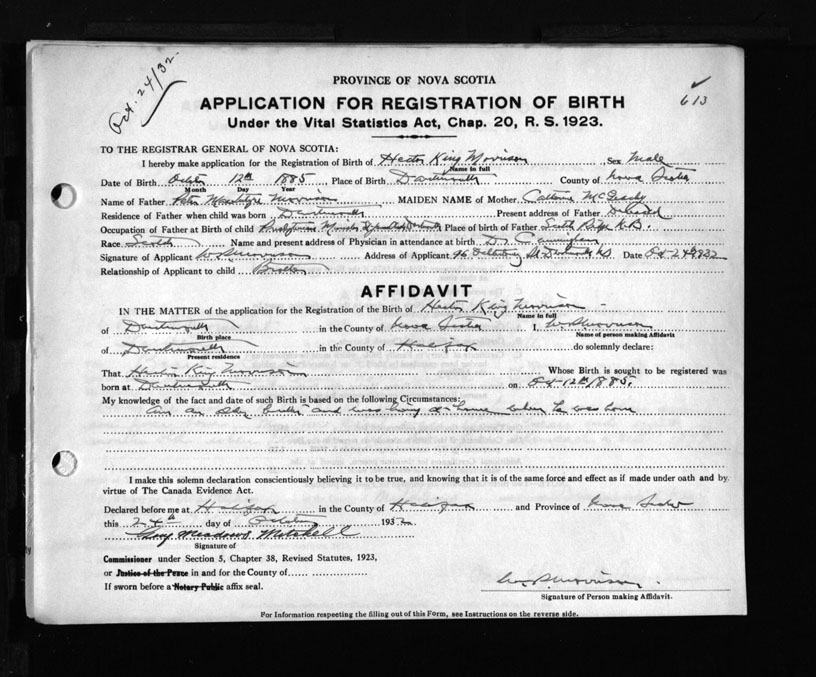 Oct. 24/32
PROVINCE OF NOVA SCOTIA
613
APPLICATION FOR REGISTRATION OF BIRTH
Under the Vital Statistics Act, Chap. 20, R. S. 1923.
TO THE REGISTRAR GENERAL OF NOVA SCOTIA:
I hereby make application for the Registration of Birth of Hector King Morrison Sex Male
Name in full
Date of Birth October 12th 1885 Place of Birth Dartmouth County of Nova Scotia
Month Day Year
Name of Father Morrison MAIDEN NAME of Mother Catherine
Residence of Father when child was born Dartmouth Present address of Father Deceased
Occupation of Father at Birth of child Presbyterian Minister Place of birth of Father Scotch
Race Scotch Name and present address of Physician in attendance at birth Dr. Cunningham
Signature of Applicant Morrison Address of Applicant 96 St. Date Oct 24th 1932
Relationship of Applicant to child Brother
AFFIDAVIT
IN THE MATTER of the application for the Registration of the Birth of Hector King Morrison
Name in full
of Dartmouth in the County of Nova Scotia I, Morrison
Birth place Name of person making Affidavit
of Dartmouth in the County of Halifax do solemnly declare:
Present residence
That Hector King Morrison Whose Birth is sought to be registered was
born at Dartmouth on Oct 12th 1885.
My knowledge of the fact and date of such Birth is based on the following Circumstances:
Am an older brother and was living at home when he was born
I make this solemn declaration conscientiously believing it to be true, and knowing that it is of the same force and effect as if made under oath and by
virtue of The Canada Evidence Act.
Declared before me at Halifax in the County of Halifax and Province of Nova Scotia
this 24th day of October 1932
Meadows Mitchell
Signature of
Commissioner under Section 5, Chapter 38, Revised Statutes, 1923,
or Justice of the Peace in and for the County of
If sworn before a Notary Public affix seal.
Morrison
Signature of Person making Affidavit.
For Information respecting the filling out of this Form, see Instructions on the reverse side.